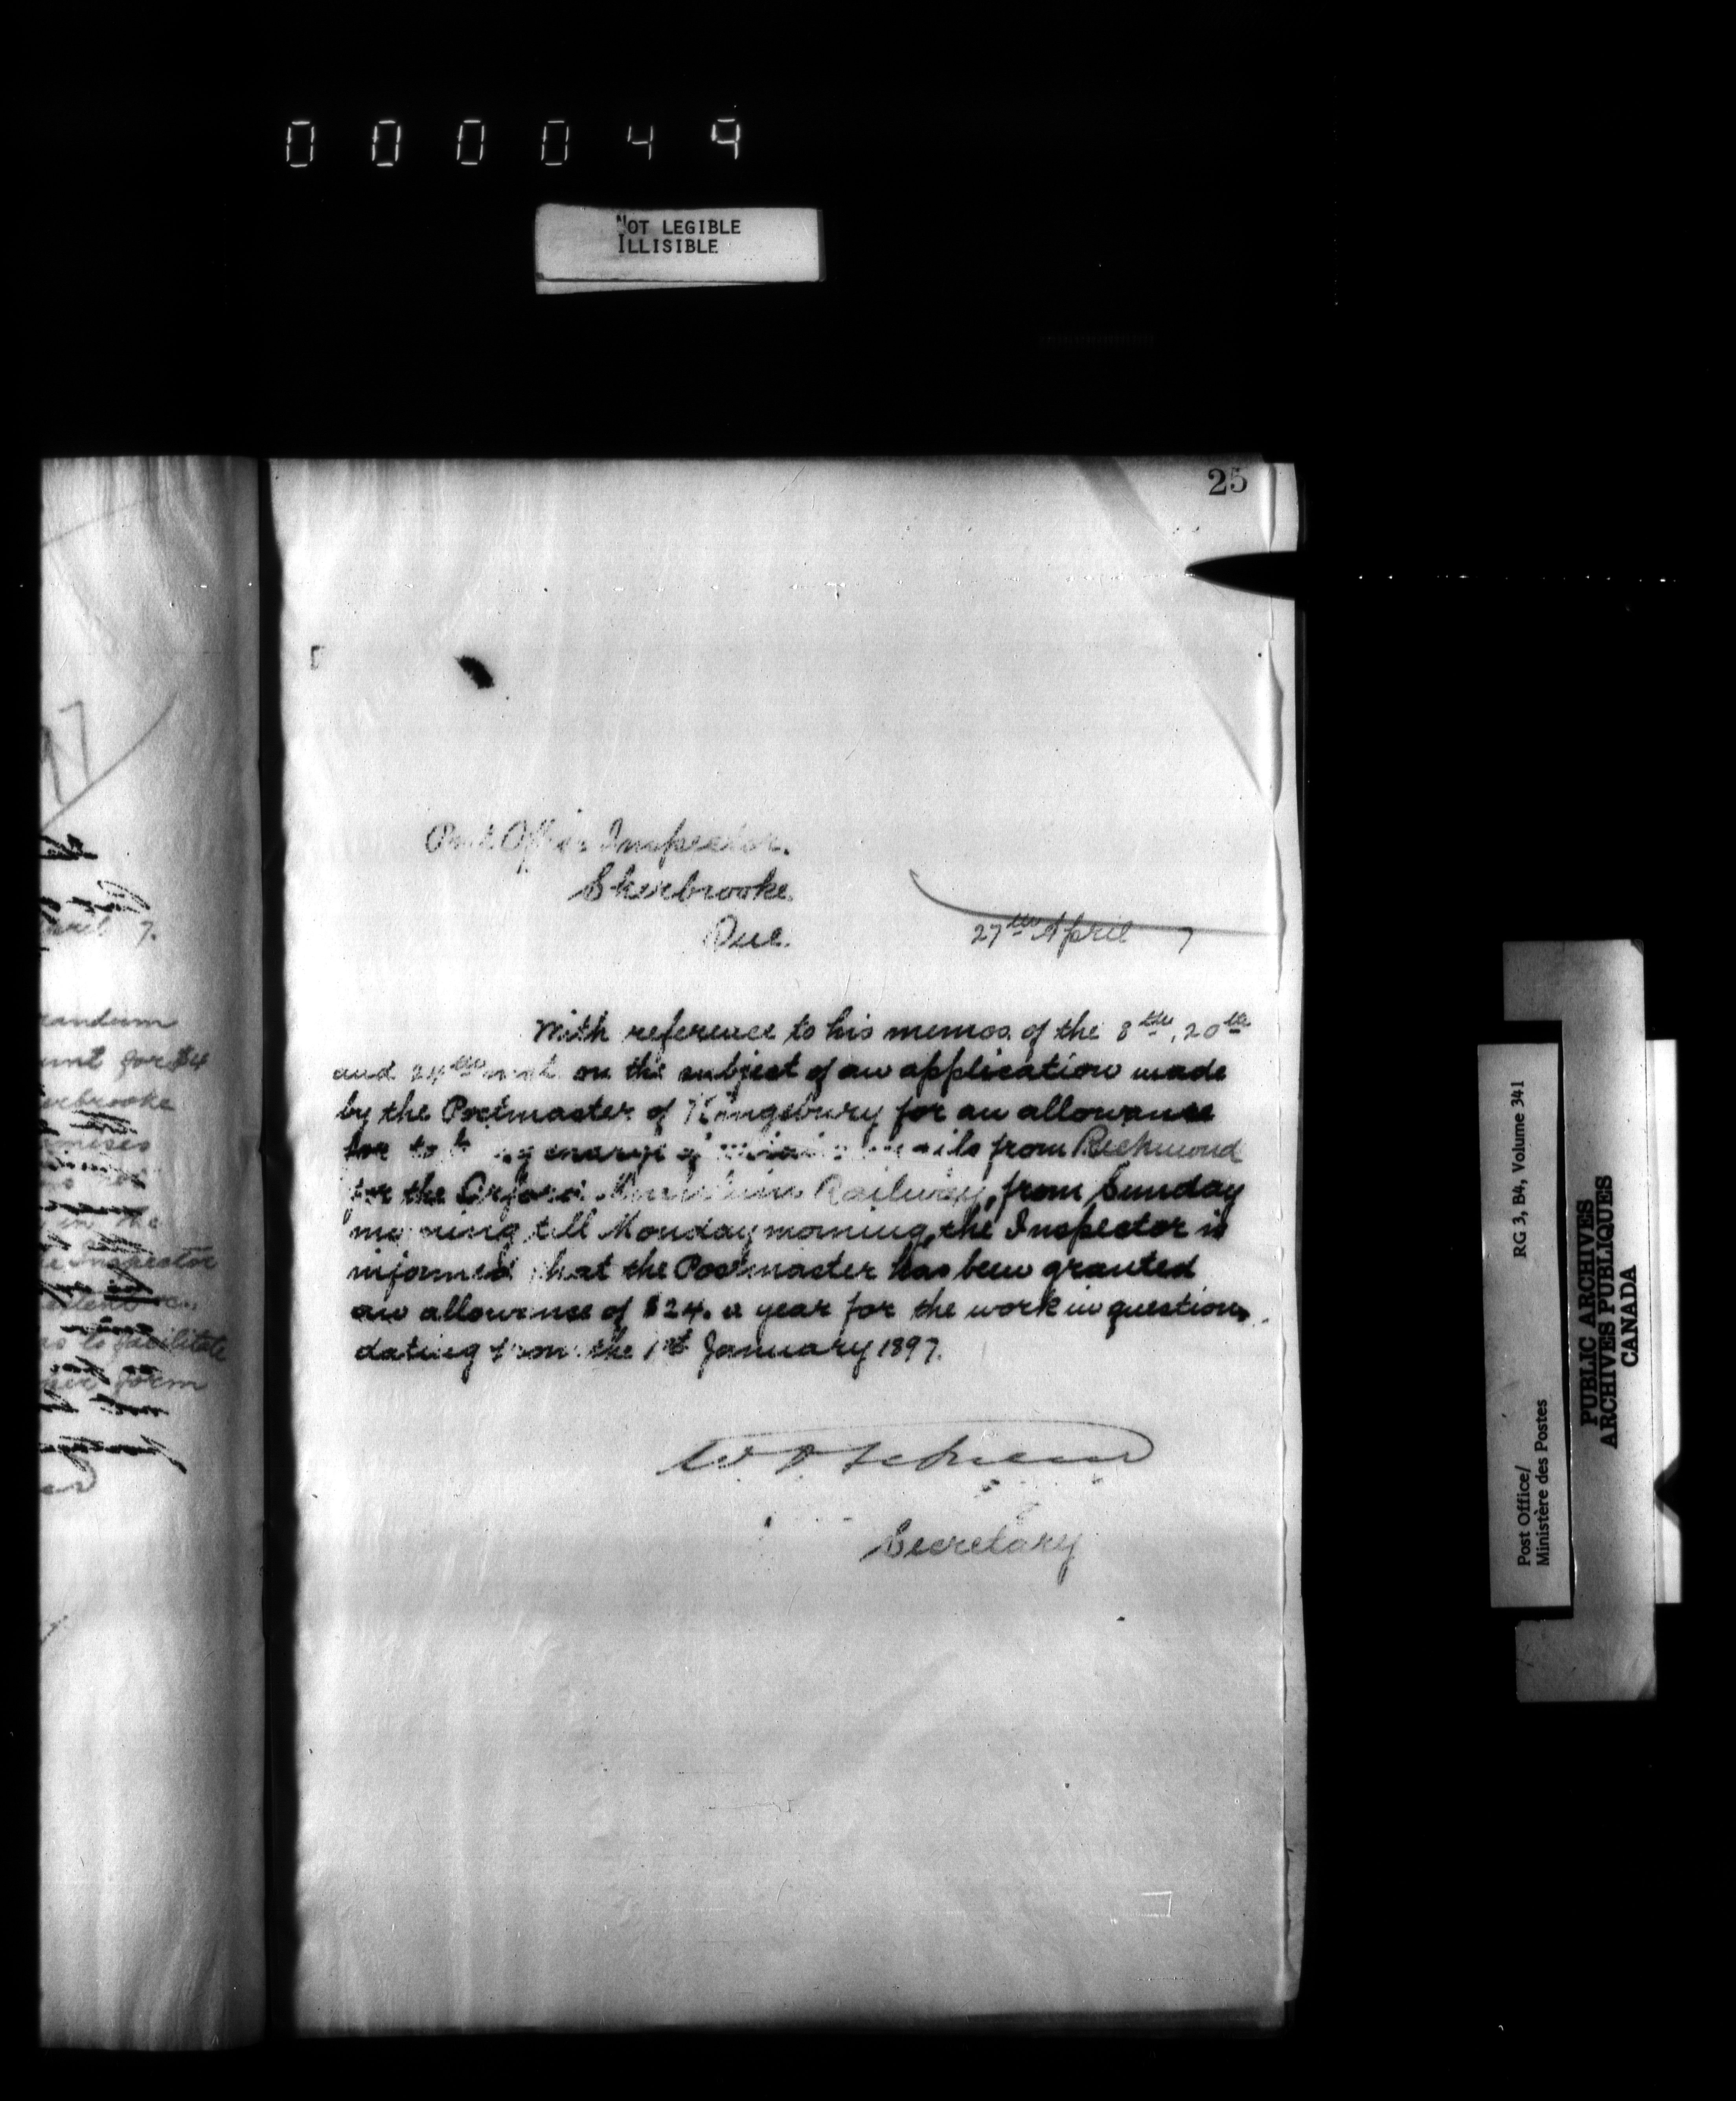 000049
NOT LEGIBLE
ILLISIBLE
25
Post Office Inspector.
Sherbrooke.
Que.
27th April 7
With reference to his memos. of the 8th, 20th
and 24th on the subject of an application made
by the Postmaster of Kingsbury for an allowance
for charge of mails from Richmond
for the Orford Mountain Railway, from Sunday
morning till Monday morning, the Inspector is
informed that the Postmaster has been granted
an allowance of $24. a year for the work in question,
dating from the 1st January 1897.
Secretary
97
7.
randum
unt for $4
erbrooke
in the
e Inspector
as to facilitate
per form
Post Office/
Ministère des Postes
RG 3, B4, Volume 341
PUBLIC ARCHIVES
ARCHIVES PUBLIQUES
CANADA